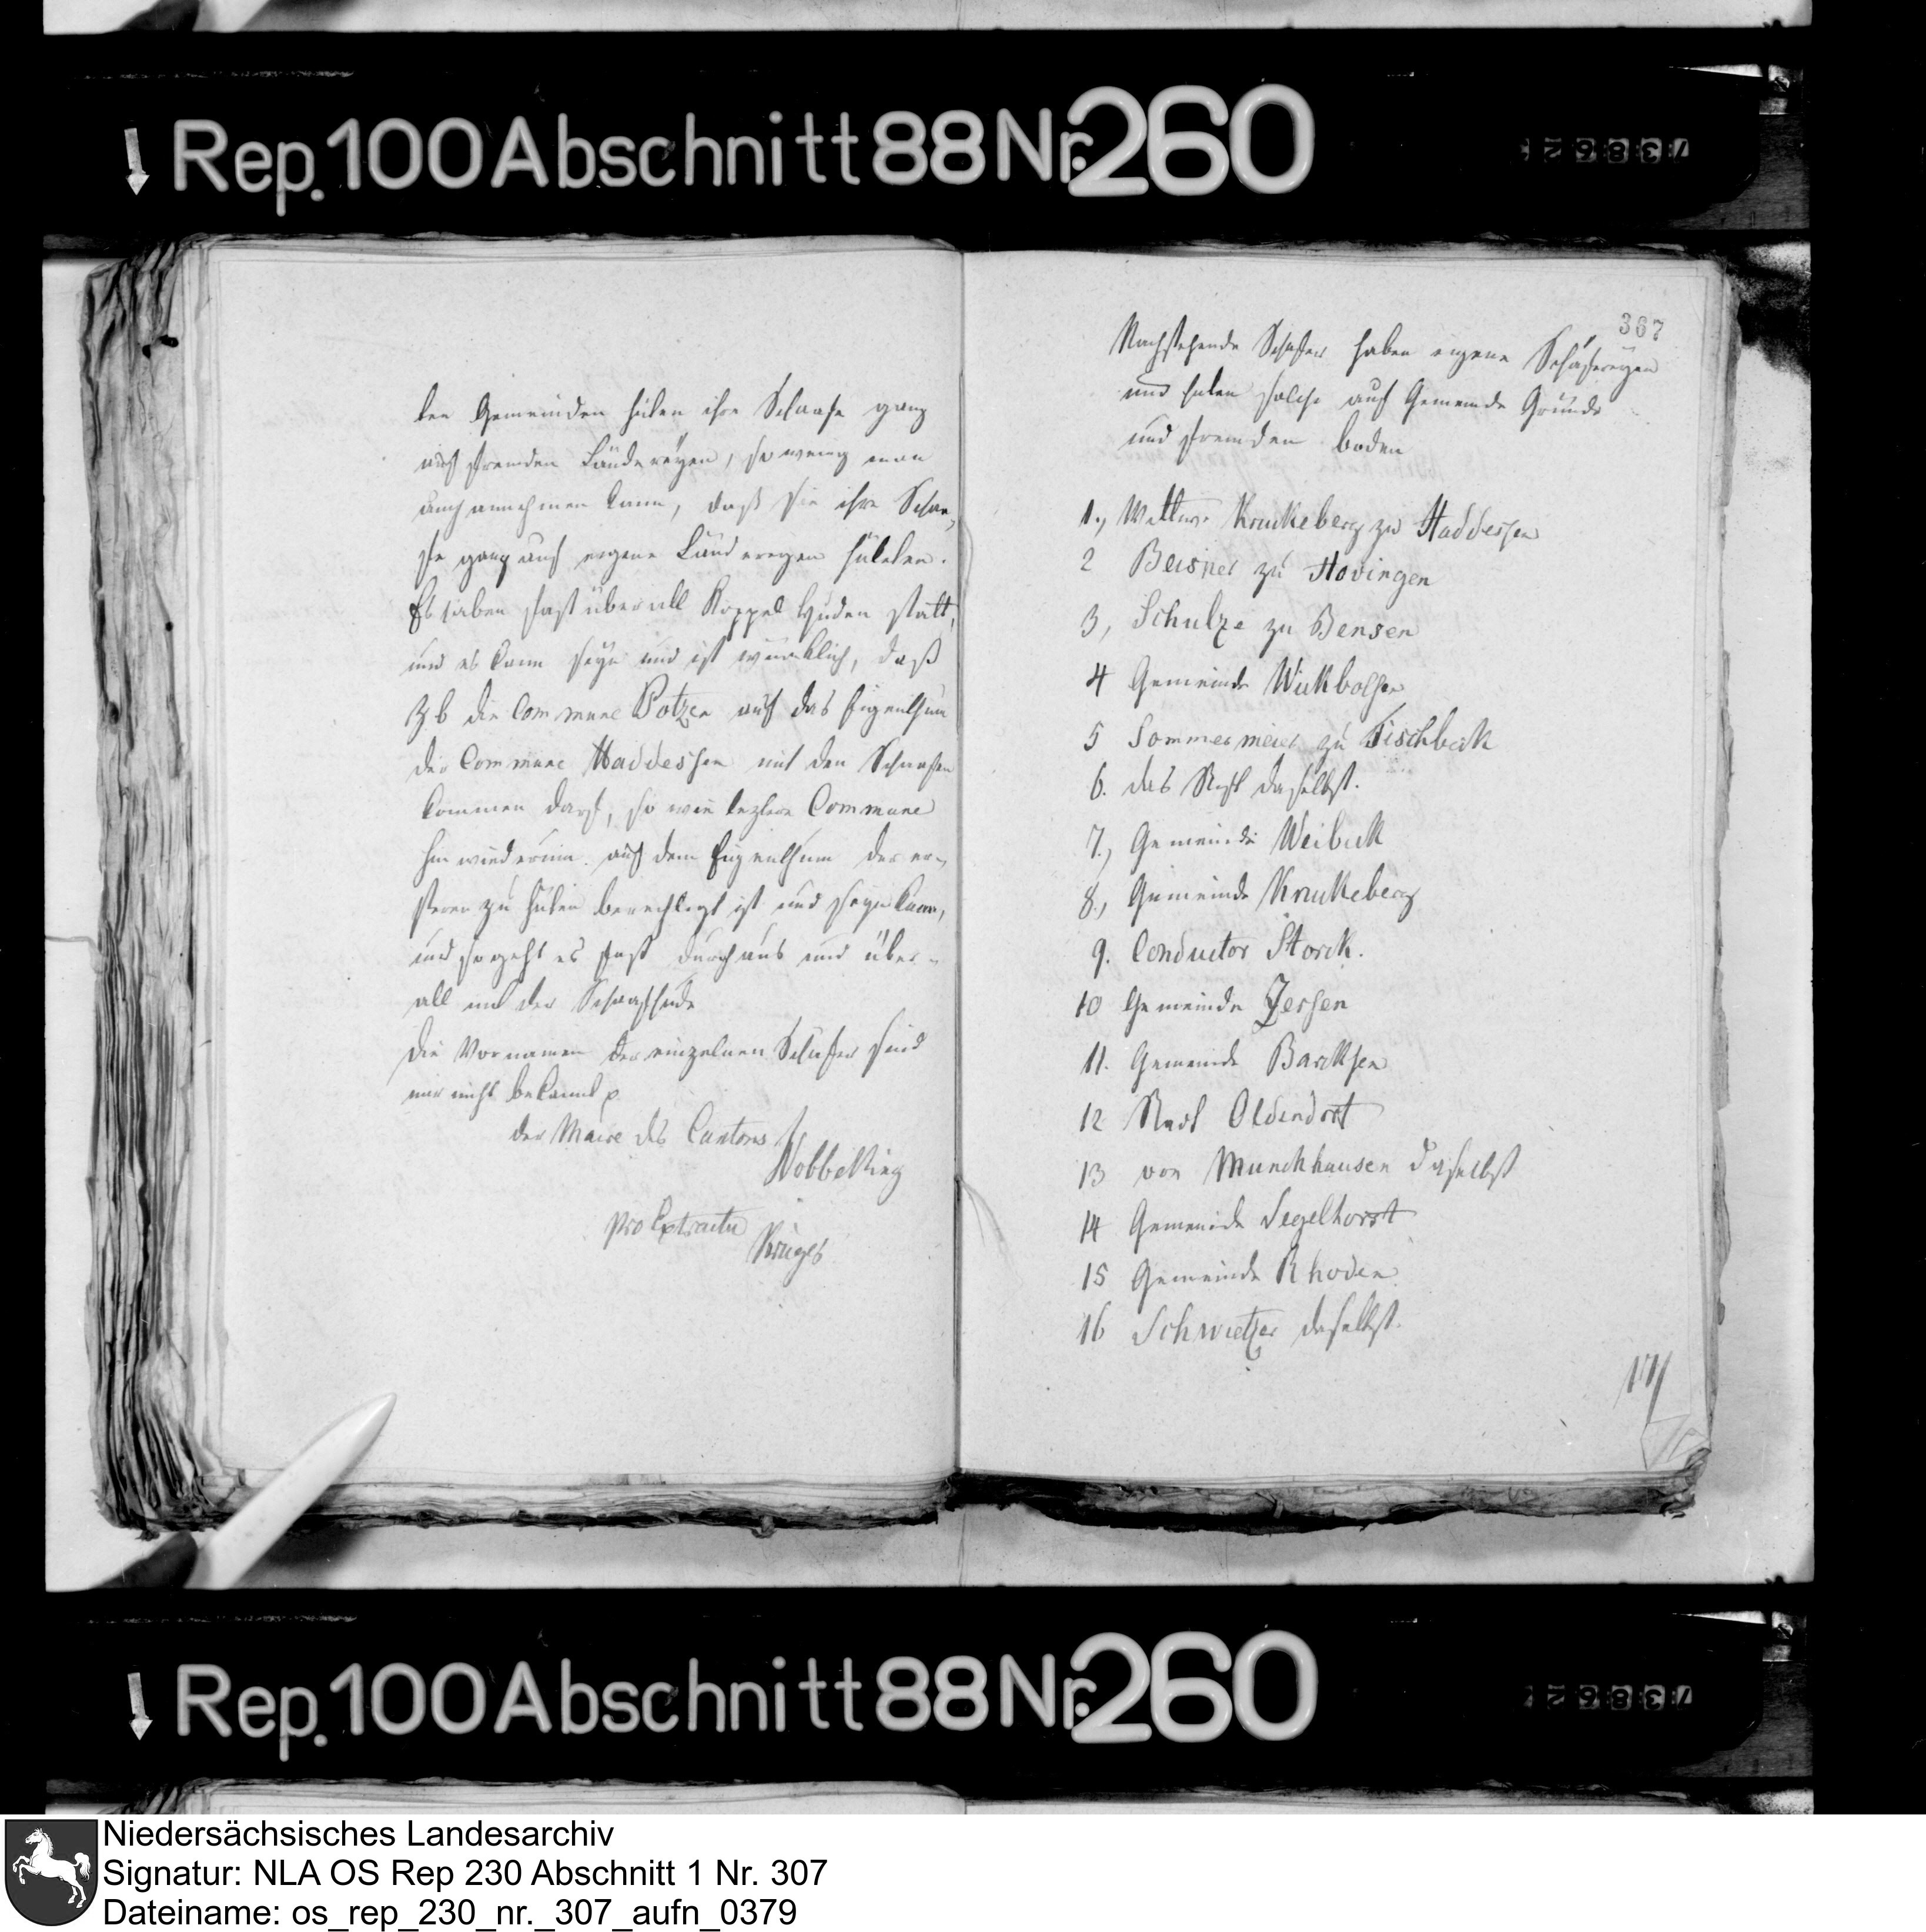 Rep. 100 Abschnitt 88 Nr. 260
ten Gemeinden hüten ihre Schaafe ganz
auf fremden Ländereÿen, so wenig man
auch annehmen kann, daß sie ihre Schaa,
fe ganz auf eigene Länderegen hüteten.
Es haben fast überall Koppel Huden statt,
und es kann seyn und ist würcklich, daß
z b die Commune Potzen auf das Eigenthum
der Commune Haddessen mit den Schaafen
kommen darf, so wie leztere Commune
hinwiederum auf dem Eigenthum der er-
steren zu hüten berechtigt ist und seyn kann,
und so geht es fast durchaus und über-
all mit der Schaafhude
Die Vornamen der einzelnen Schäfer sind
mir nicht bekannt
der Maire des Cantons
pro Extractu
Krüger
367
Nachstehende Schäfer haben eigene Schäfereyen
und hüten solche auf Gemeinde Grunde
und fremden boden
1., Wittwe Kruckeberg zu Haddessen
2 Beisner zu Hovingen
3, Schulze zu Bensen
4 Gemeinde Wickbolsen
5 Sommermeier zu Fischbeck
6. das Stift daselbst.
7., Gemeinde Weibeck
8., Gemeinde Kruckeberg
9. Conductor Storck.
10 Gemeinde Zersen
11. Gemeinde Barcksen
12 Stadt Oldendorf
13 von Munchhausen daselbst
14 Gemeinde Segelhorst
15 Gemeinde Rhoden
16 Schwietzer daselbst.
Rep. 100 Abschnitt 88 Nr. 260
Niedersächsisches Landesarchiv
Signatur: NLA OS Rep 230 Abschnitt 1 Nr. 307
Dateiname: os_rep_230_nr._307_aufn_0379